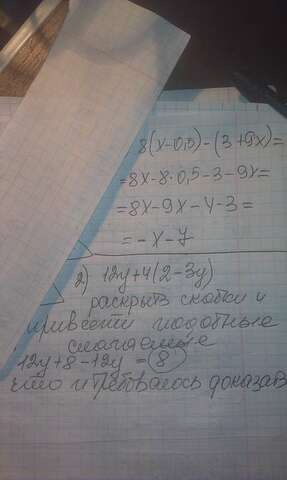 8(x-0,5)-(3+9x)=
=8x-8·0,5-3-9x=
=8x-9x-4-3=
=-x-7
2) 12y+4(2-3y)
раскрыв скобки и
привести подобные
слагаемые
12y+8-12y=8
что и требовалось доказать